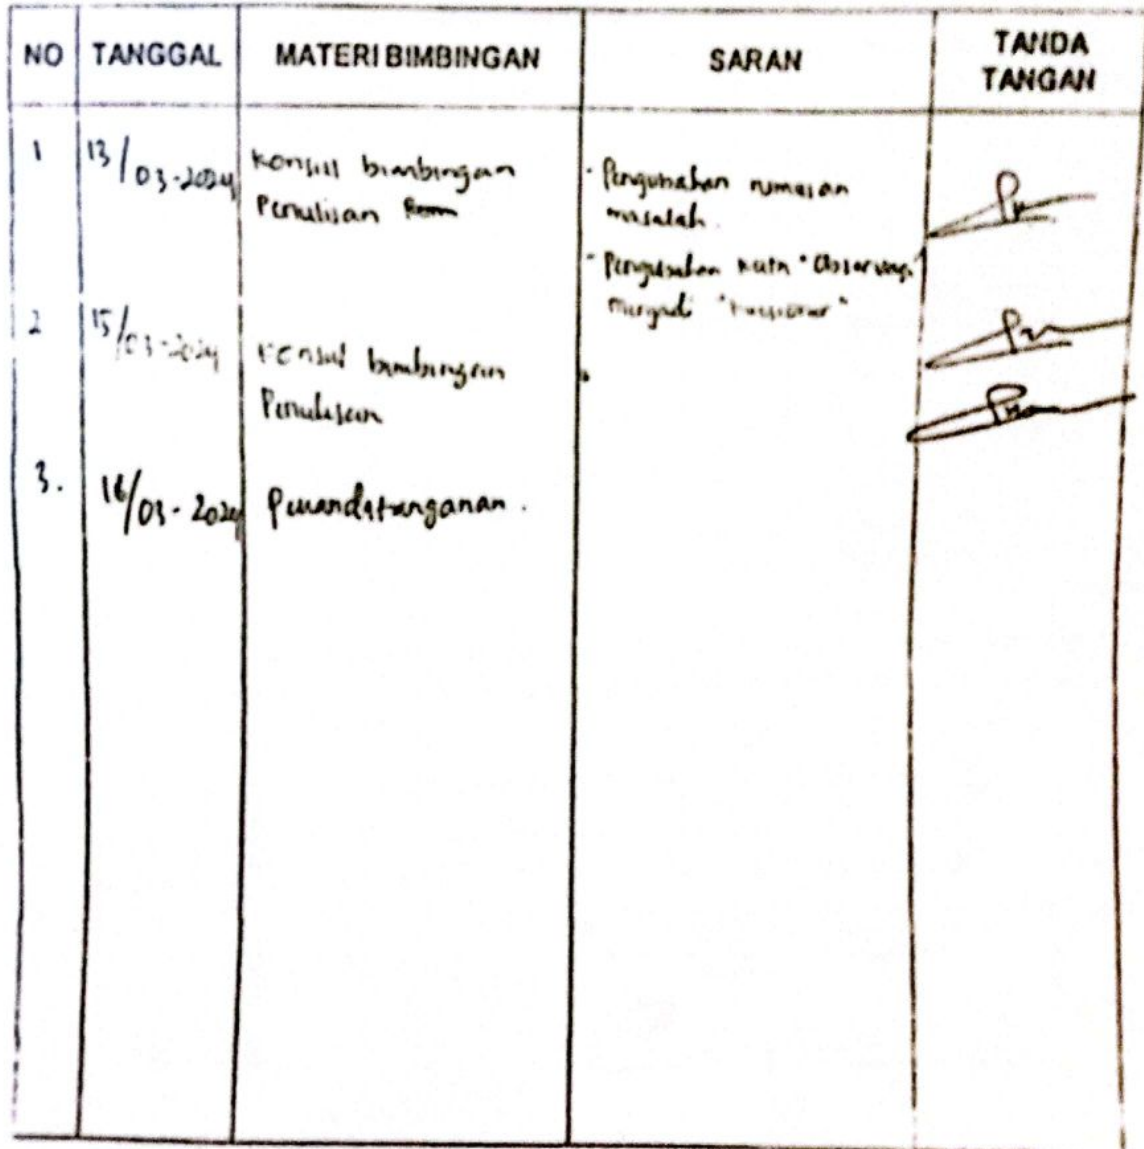 NO TANGGAL MATERI BIMBINGAN SARAN TANDA TANGAN
1 13/03-2024 Konsul bimbingan
Penulisan
- Pengubahan rumusan
masalah.
- Pengubahan kata "Observasi"
menjadi "kuesioner"
2 15/03-2024 Konsul bimbingan
Penulisan
3. /03-2024 Penandatanganan.